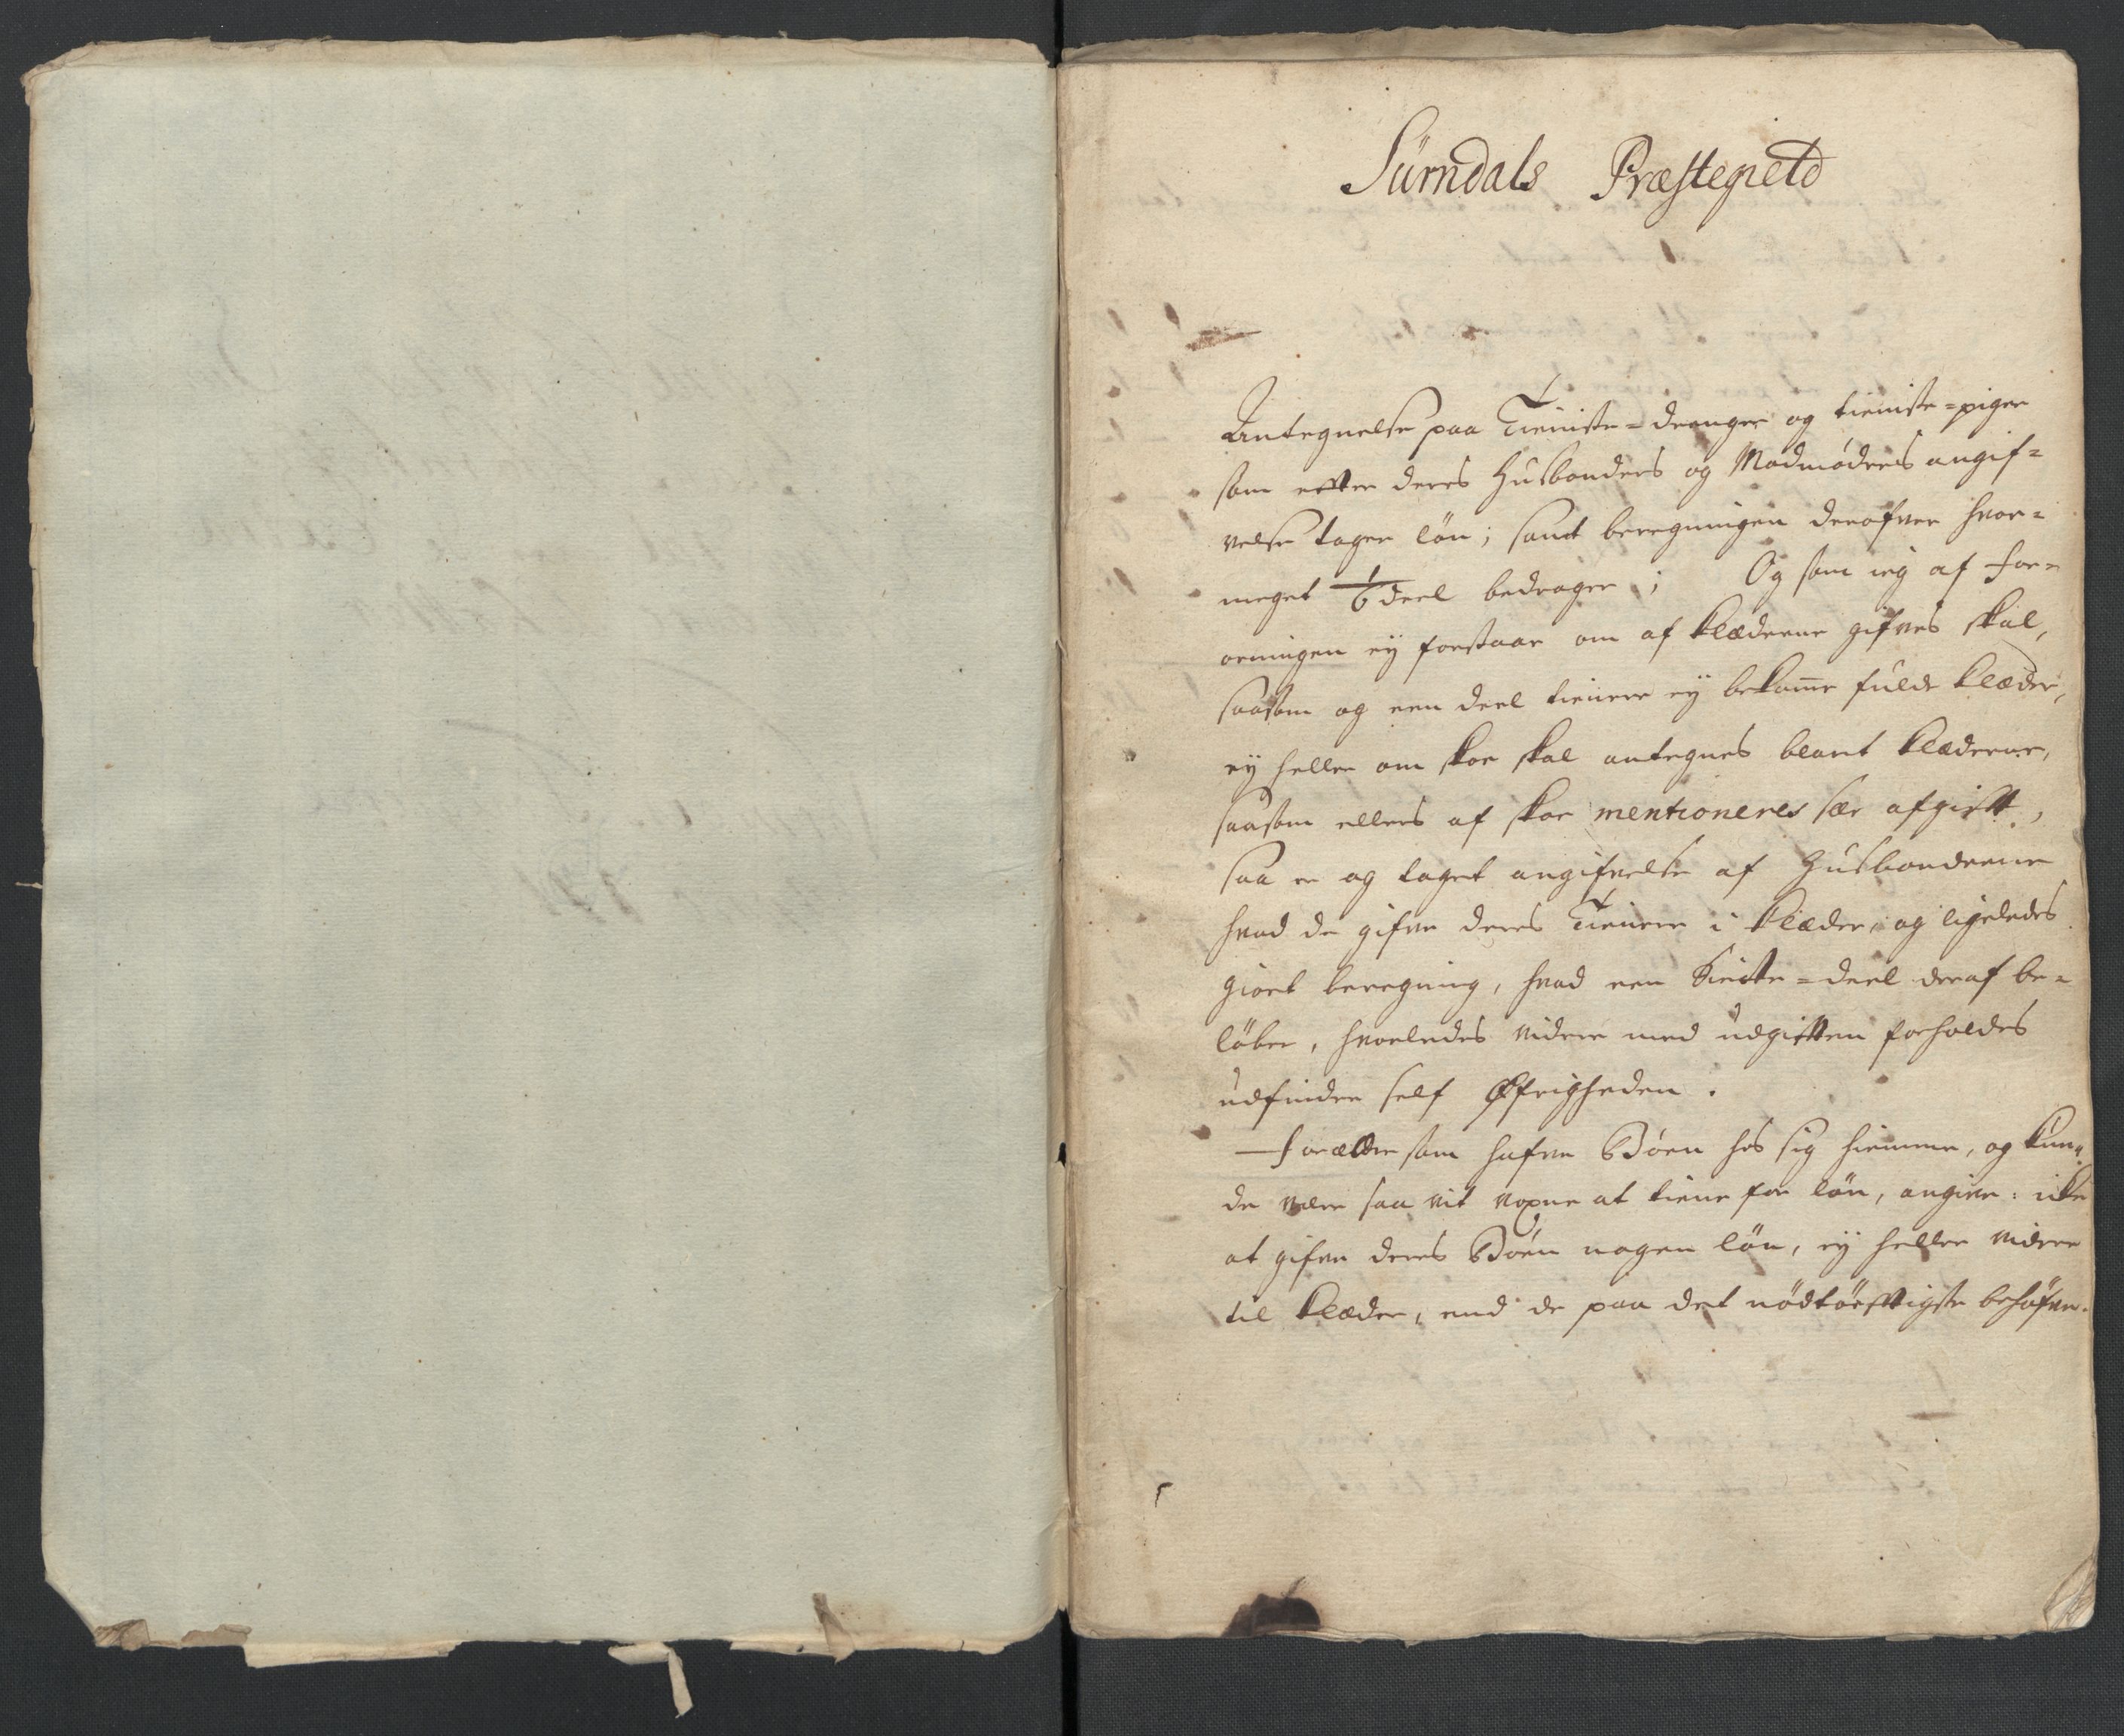 Surndals Præstegield
Antegnelse paa Tieniste=drenger og tieniste=piger
som efter deres Husbonders og Madmødres angif=
velse tager løn; samt beregningen derofver hvor=
meget 1/6 deel bedrager; Og som ieg af for=
ordningen ey forstaar om af klæderne gifves skal,
saasom og een deel tienere ey bekom̄e fulde klæder,
ey heller om skoe skal antegnes blant klæderne,
saasom ellers af skoe mentioneres sær afgift,
saa er og taget angifvelse af Husbonderne
hvad de gifve deres Tienere i klæder, og ligeledes
giort beregning, hvad een Siette=deel deraf be=
løber, hvorledes videre med udgiften forholdes
udfinder self Øfrigheden.
Forældre som hafve Børn hos sig hiemme, og kun=
de være saa vit voxne at tiene for løn, angive: ikke
at gifve deres Børn nogen løn, ey heller videre
til klæder, end de paa det nødtørfftigste behøfve.